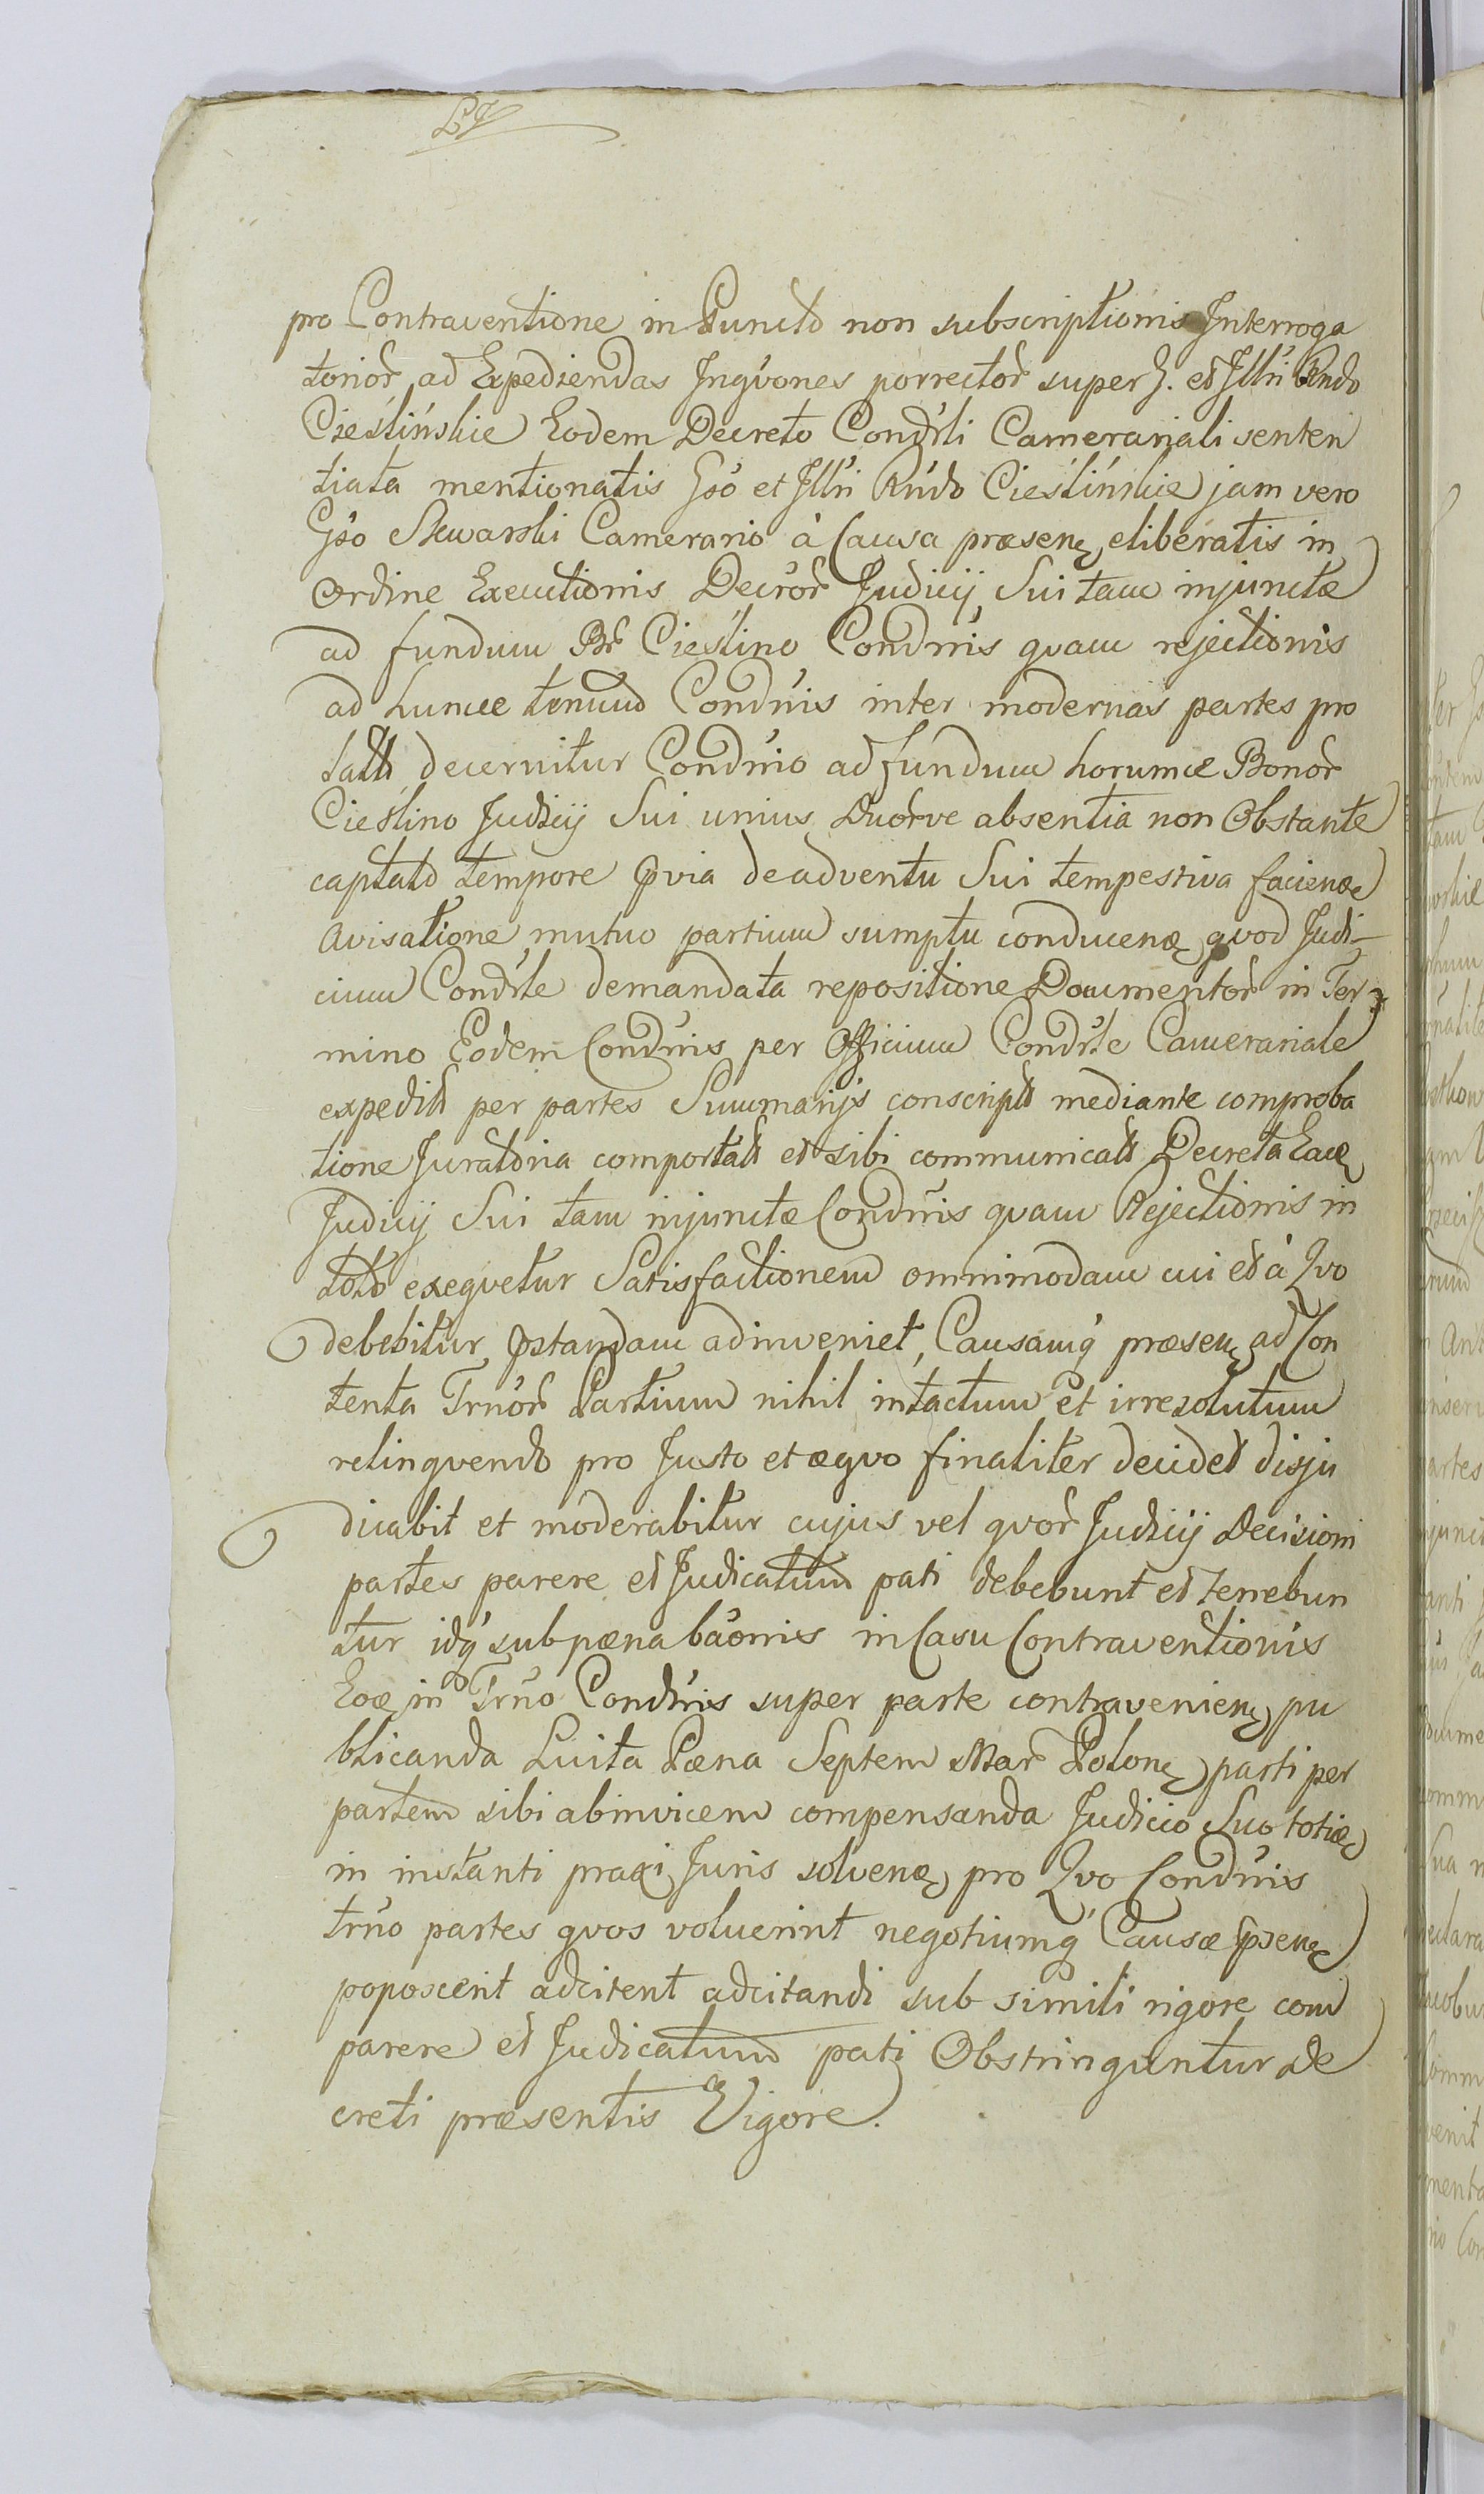 pro Contraventione in Puncto non subscriptionis Interroga
torior ad Expediendas Inqvones porrector super G. et Illri Rndo
Cieślińskie Eodem Decreto Condrli Camerariali senten
tiata mentionatis Gso et Illri Rndo Cieślińskie jam vero
Gso Skwarski Camerario à Causa præsen eliberatis in
Ordine Executionis Decror Judicij Sui tam injunctæ
ad fundum Br Cieślino Condnis qvam rejectionis
ad hunce termud Condnis inter modernas partes pro
latis decernitur Condnio ad fundum horumce Bonor
Cieślino Judicij Sui unius Duorve absentia non Obstante
captato tempore qvia de adventu Sui tempestiva facien
Avisatione mutuo partium sumptu conducen qvod Judi-
cium Condrle demandata repositione Documentor in Ter
mino Eodem Condnis per Officium Condrle Camerariale
expeditis per partes Summarijs conscriptis mediante comproba
tione Juratoria comportatis et sibi communicatis Decreta Ea
Judicij Sui tam injunctæ Condnis qvam Rejectionis in
toto exeqvetur Satisfactionem omnimodam cui et à Qvo
debebitur pstandam adinveniet, Causamq præsen ad Con
tenta Trnor Partium nihil intactum et irresolutum
relinqvendo pro Justo et æqvo finaliter decidet disju
dicabit et moderabitur cujus vel qvor Judicij Decisioni
partes parere et Judicatum pati debebunt et tenebun
tur idq sub pæna baonis in Casu Contraventionis
Eo in Trno Condnis super parte contravenien pu
blicanda Luita Pæna Septem Mar Polon parti per
partem sibi abinvicem compensanda Judicio Suo toti
in instanti praxi Juris solven pro Qvo Condnis
trno partes qvos voluerint negotiumq Causæ psen
poposcerit adcitent adcitandi sub simili rigore com
parere et Judicatum pati Obstringuntur De
creti præsentis Vigore.